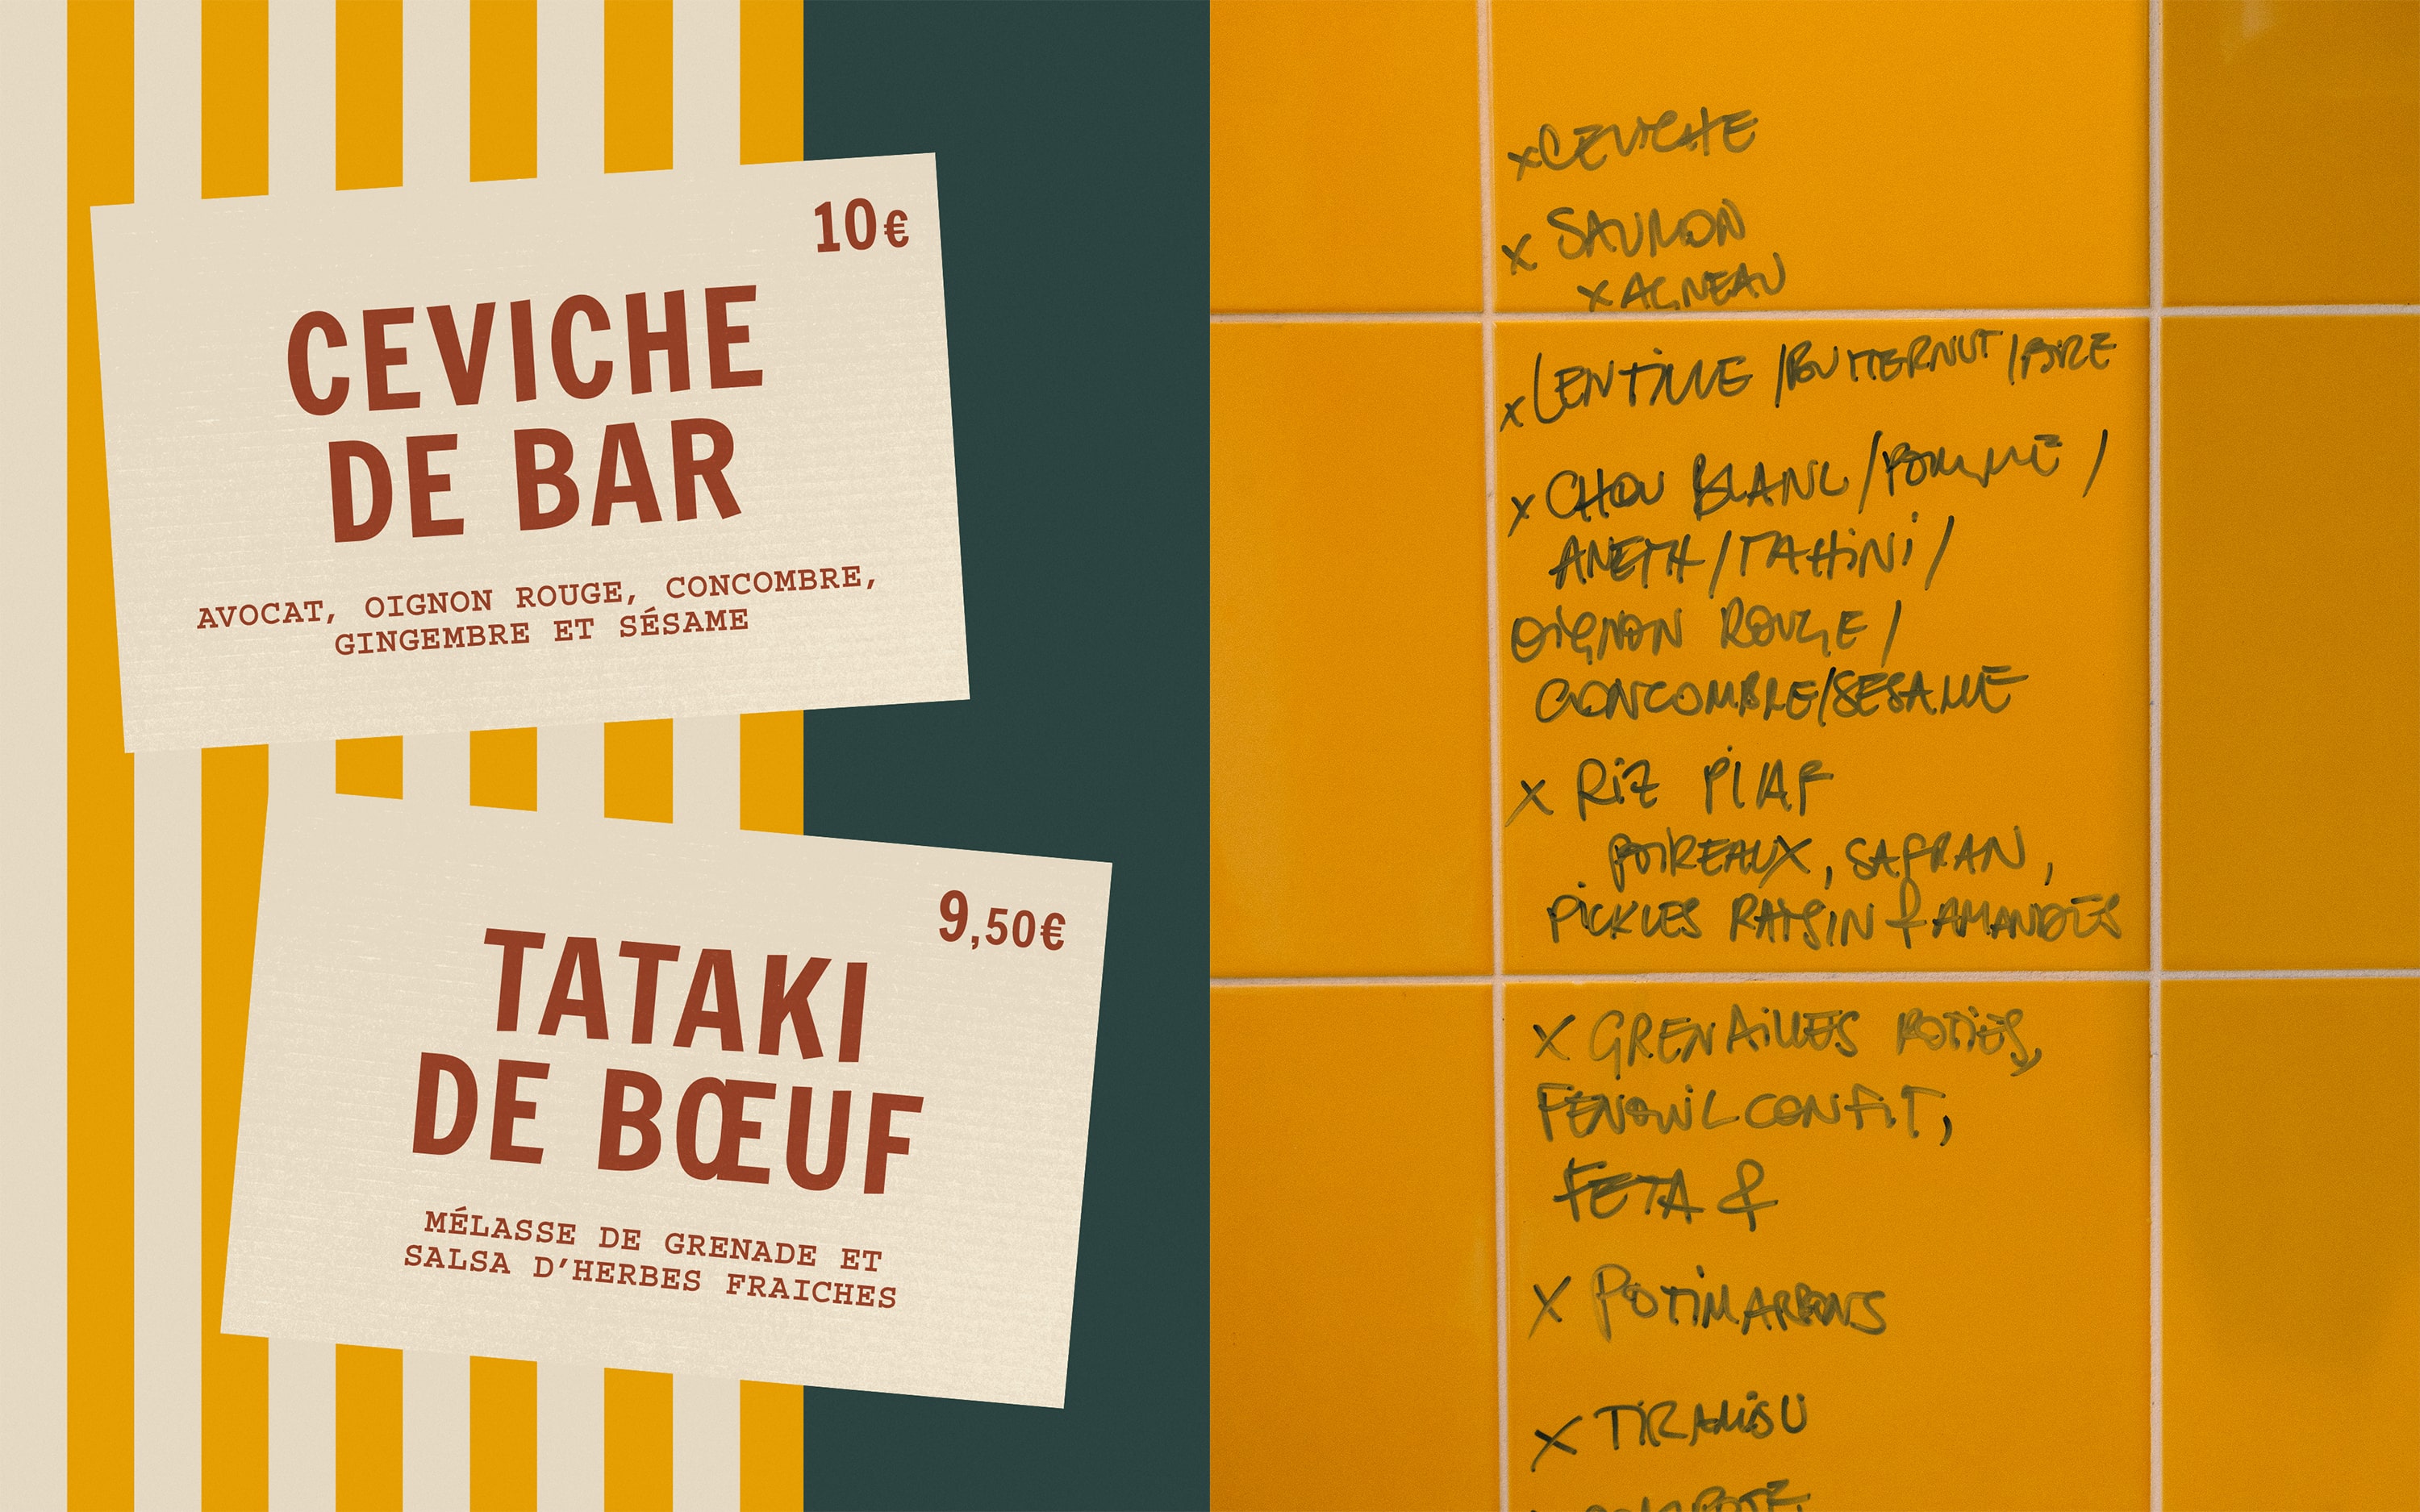 10€
CEVICHE
DE BAR
AVOCAT, OIGNON ROUGE, CONCOMBRE,
GINGEMBRE ET SÉSAME
9,50€
TATAKI
DE BŒUF
MÉLASSE DE GRENADE ET
SALSA D’HERBES FRAICHES
x CEVICHE
x SAUMON
x AGNEAU
x LENTILLE / BUTTERNUT / POIRE
x CHOU BLANC / POMME /
ANETH / TAHiNi /
OiGNON ROUGE /
CONCOMBRE/SESAME
x RiZ PiLAF
POiREAUX, SAFRAN,
PiCKLES RAISIN & AMANDES
x GRENAiLLES ROTiES,
FENOUiL CONFiT,
FETA &
x POTiMARRONS
x TiRAMiSU